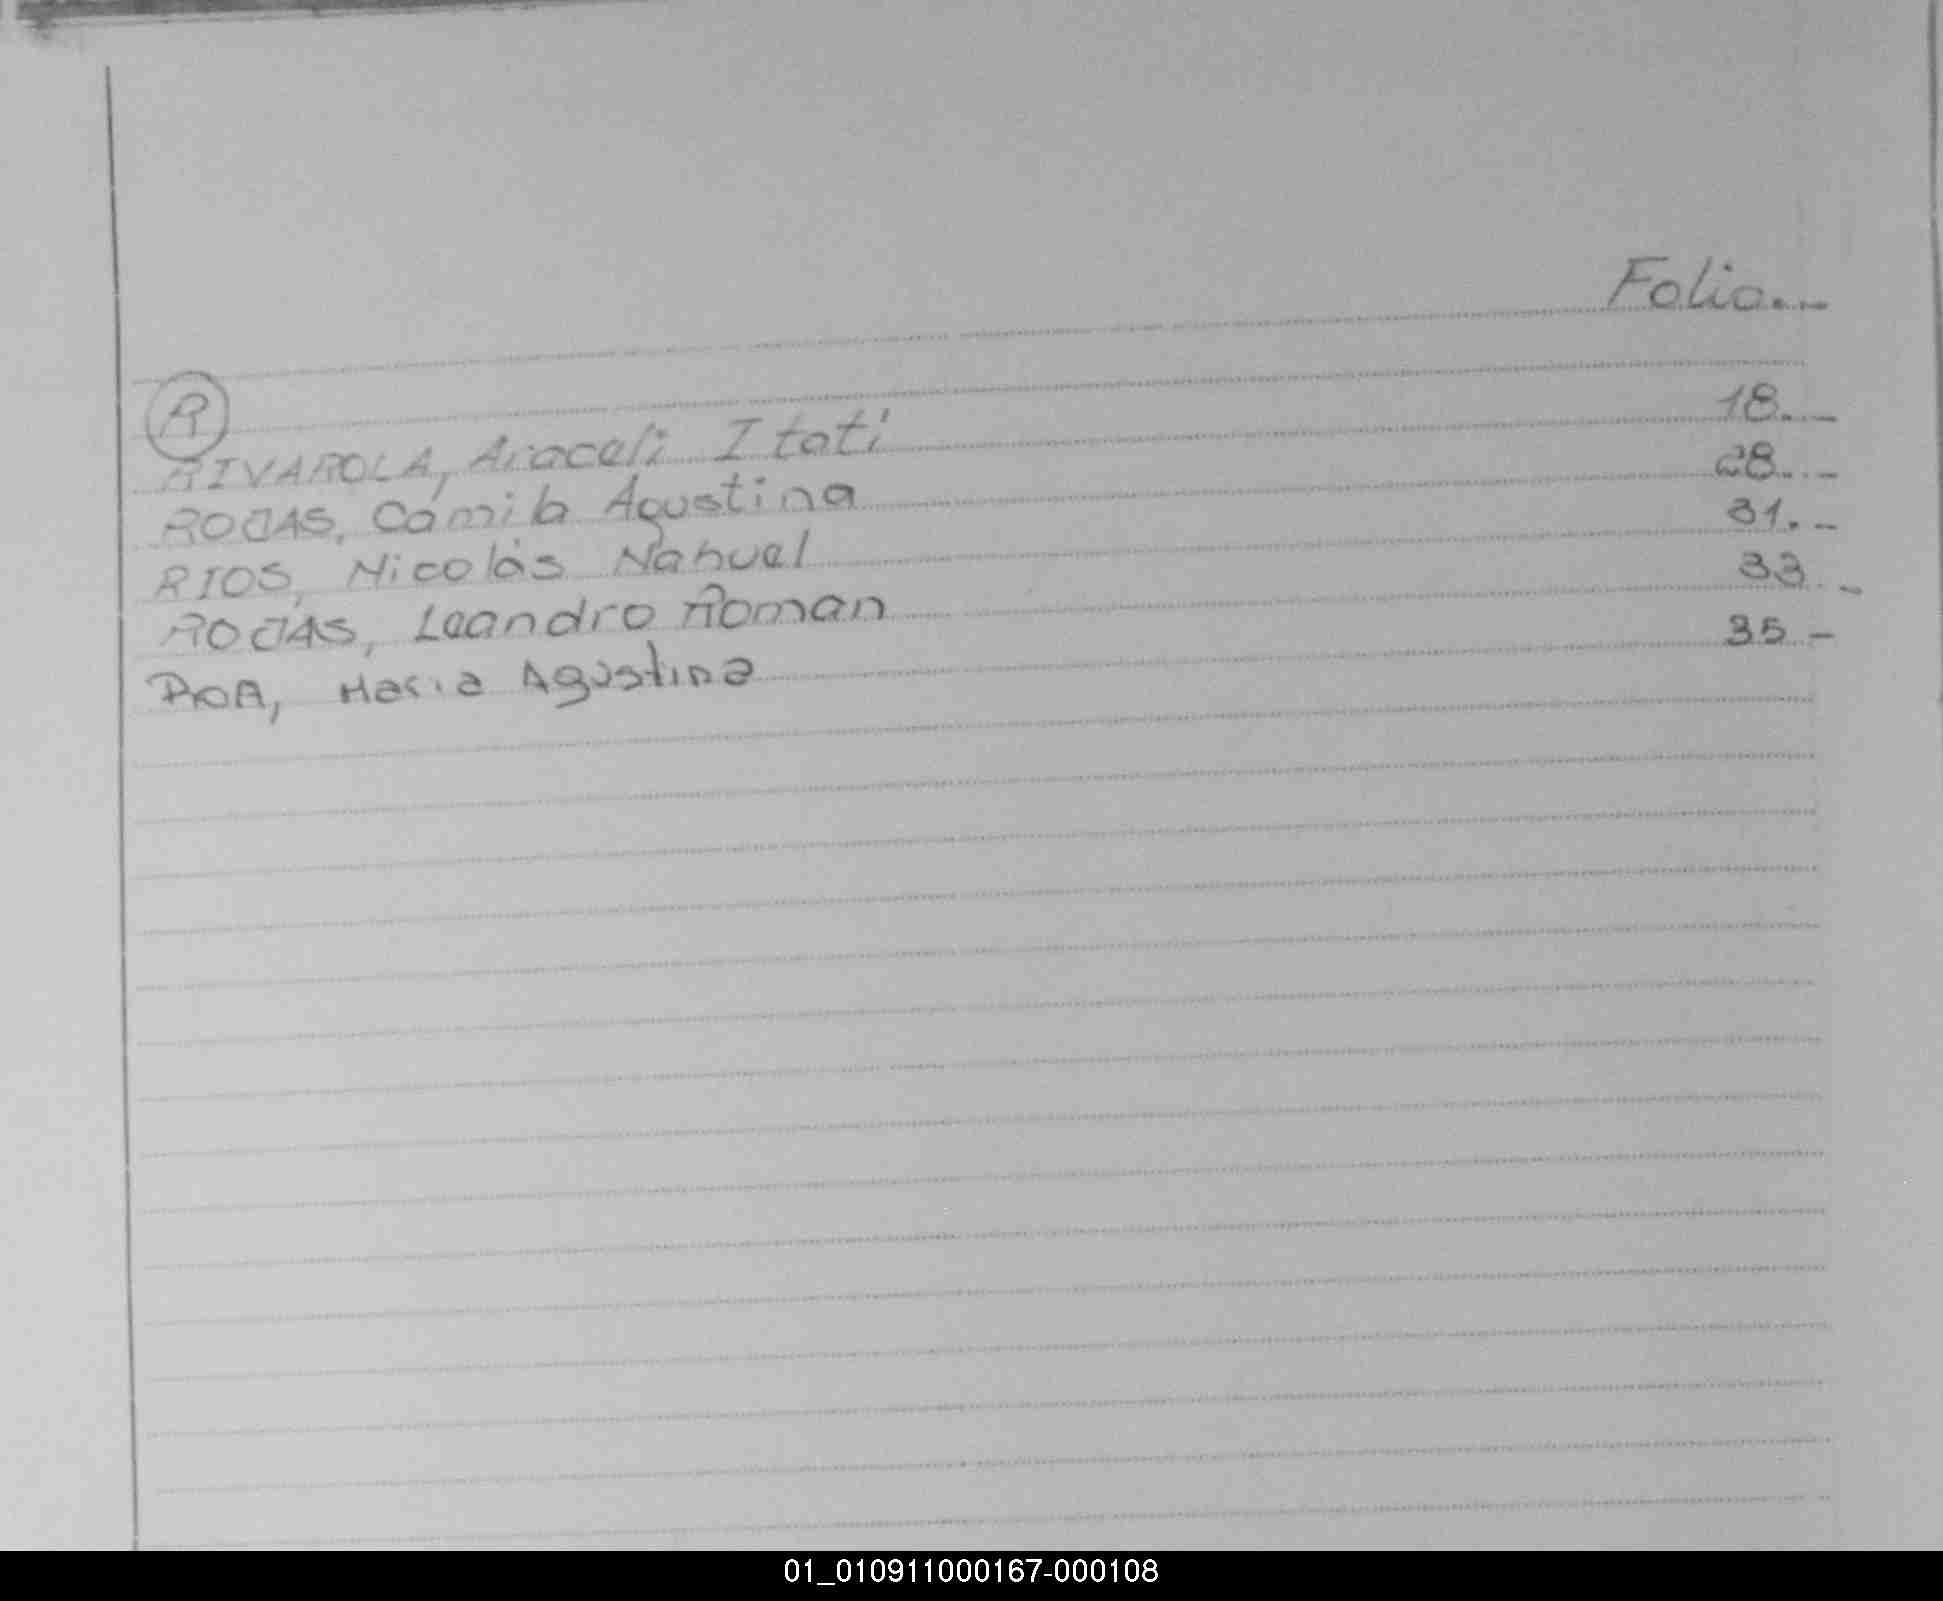 Folio.-
R
RIVAROLA, Araceli Itati 18.-
ROJAS, Camila Agustina 28.-
RIOS, Nicolás Nahuel 31.-
ROJAS, Leandro Roman 33.-
ROA, Maria Agustina 35.-
01_010911000167-000108